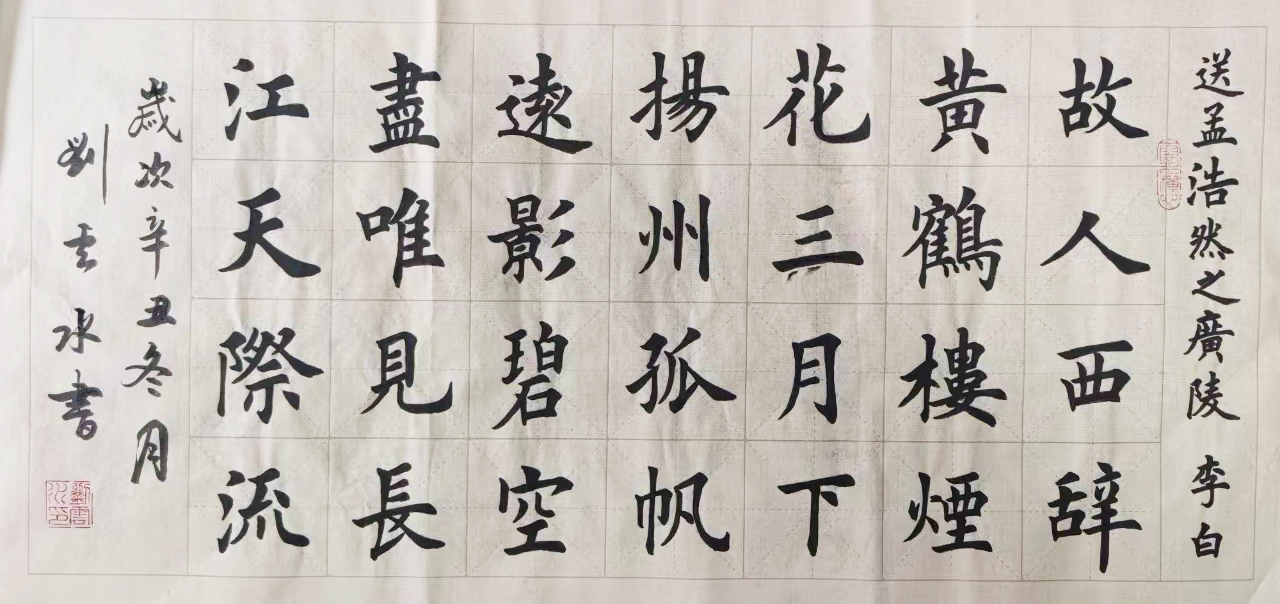 送孟浩然之廣陵 李白
故人西辞
黄鶴樓煙
花三月下
揚州孤帆
遠影碧空
盡唯見長
江天際流
歲次辛丑冬月
劉云水書